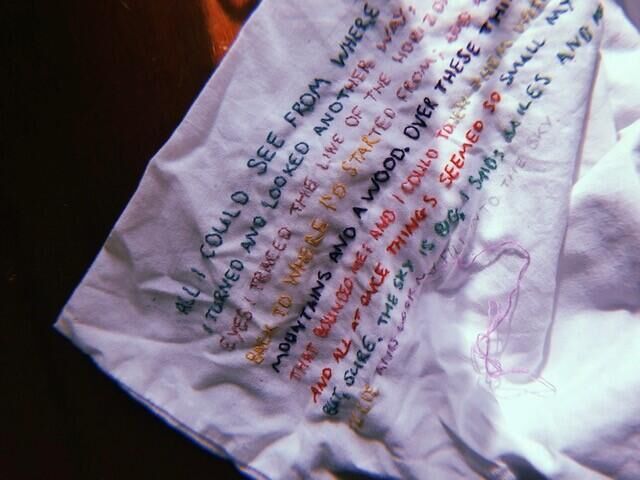 ALL I COULD SEE FROM WHERE
I TURNED AND LOOKED ANOTHER WAY;
EYES I TRACED THE LINE OF THE
BACK TO WHERE I'D STARTED FROM; AND
MOUNTAINS AND A WOOD. OVER THESE
THAT BOUNDED ME; AND I COULD
AND ALL AT ONCE THINGS SEEMED SO SMALL MY
BUT, SURE, THE SKY IS BIG, I SAID; MILES AND
AND LOOK MY FILL INTO THE SKY